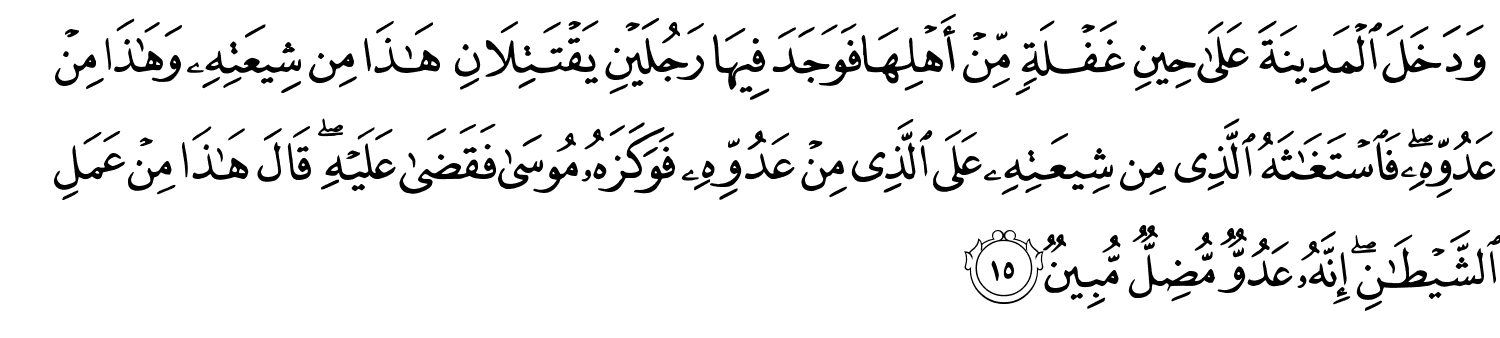 وَدَخَلَ ٱلۡمَدِينَةَ عَلَىٰ حِينِ غَفۡلَةٖ مِّنۡ أَهۡلِهَا فَوَجَدَ فِيهَا رَجُلَيۡنِ يَقۡتَتِلَانِ هَٰذَا مِن شِيعَتِهِۦ وَهَٰذَا مِنۡ
عَدُوِّهِۦۖ فَٱسۡتَغَٰثَهُ ٱلَّذِي مِن شِيعَتِهِۦ عَلَى ٱلَّذِي مِنۡ عَدُوِّهِۦ فَوَكَزَهُۥ مُوسَىٰ فَقَضَىٰ عَلَيۡهِۖ قَالَ هَٰذَا مِنۡ عَمَلِ
ٱلشَّيۡطَٰنِۖ إِنَّهُۥ عَدُوّٞ مُّضِلّٞ مُّبِينٞ ١٥